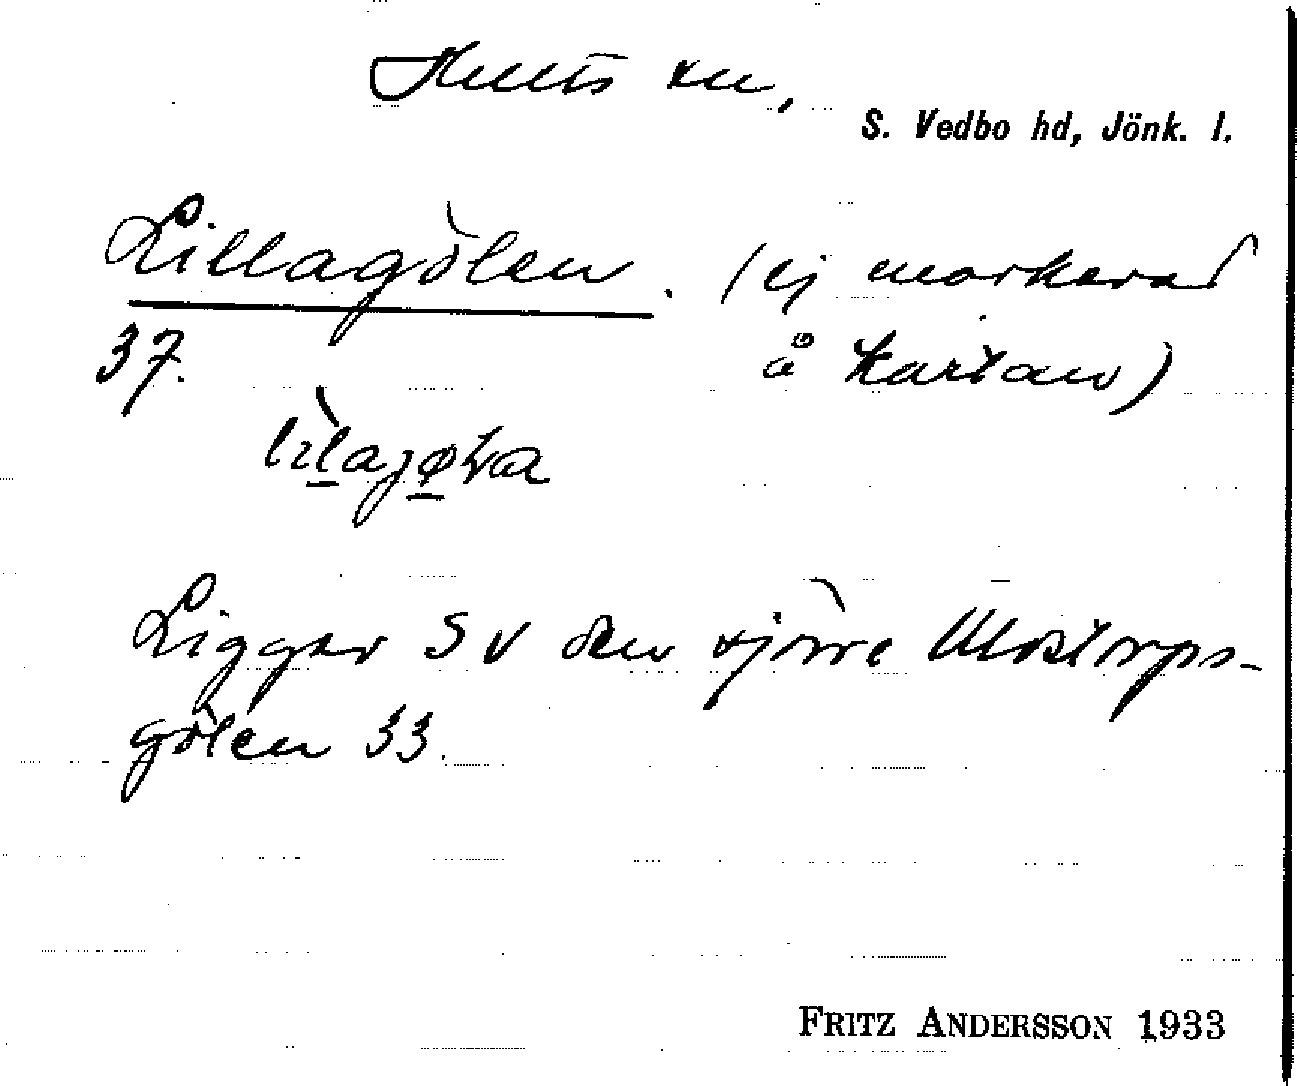 Hults sn,
S. Vedbo hd, Jönk. l.
Lillagölen. (ej markerad
37. å kartan)
Ligger SV den större Mostorps-
gölen 33.
FRITZ ANDERSSON 1933